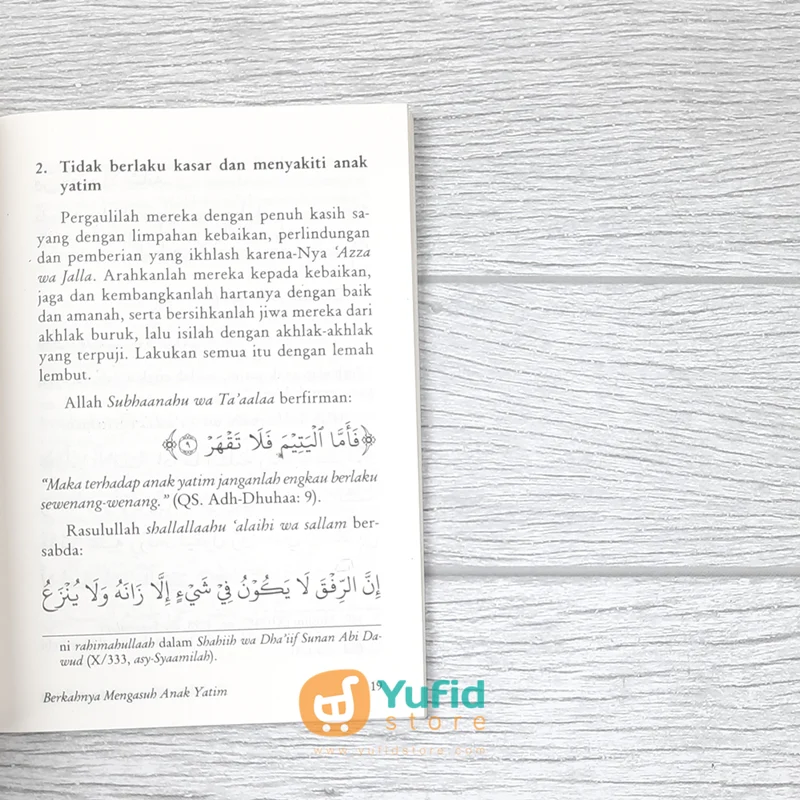 2. Tidak berlaku kasar dan menyakiti anak
yatim
Pergaulilah mereka dengan penuh kasih sa-
yang dengan limpahan kebaikan, perlindungan
dan pemberian yang ikhlash karena-Nya ‘Azza
wa Jalla. Arahkanlah mereka kepada kebaikan,
jaga dan kembangkanlah hartanya dengan baik
dan amanah, serta bersihkanlah jiwa mereka dari
akhlak buruk, lalu isilah dengan akhlak-akhlak
yang terpuji. Lakukan semua itu dengan lemah
lembut.
Allah Subhaanahu wa Ta’aalaa berfirman:
﴿فَأَمَّا ٱلْيَتِيمَ فَلَا تَقْهَرْ ۝٩﴾
“Maka terhadap anak yatim janganlah engkau berlaku
sewenang-wenang.” (QS. Adh-Dhuhaa: 9).
Rasulullah shallallaahu ‘alaihi wa sallam ber-
sabda:
إِنَّ الرِّفْقَ لَا يَكُوْنُ فِيْ شَيْءٍ إِلَّا زَانَهُ وَلَا يُنْزَعُ
ni rahimahullaah dalam Shahiih wa Dha’iif Sunan Abi Da-
wud (X/333, asy-Syaamilah).
Berkahnya Mengasuh Anak Yatim 19
Yufid
store
www.yufidstore.com